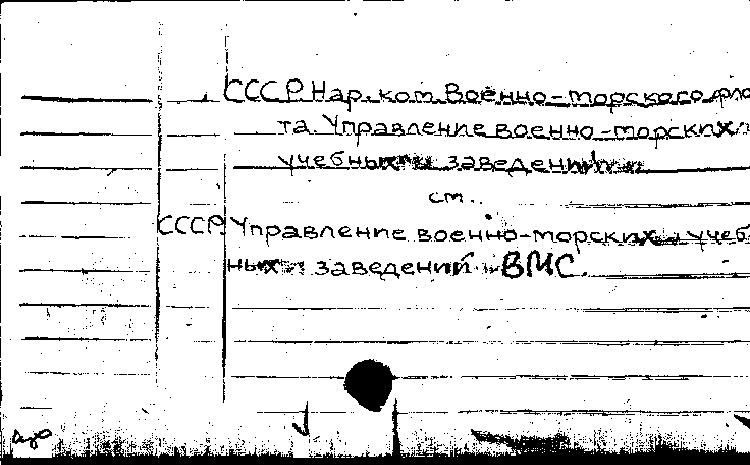 СССР. Нар. ком. Военно-морского фло
та. Управление военно-морских
учебных заведений
см.
СССР. Управление военно-морских учеб
ных заведений ВМС.